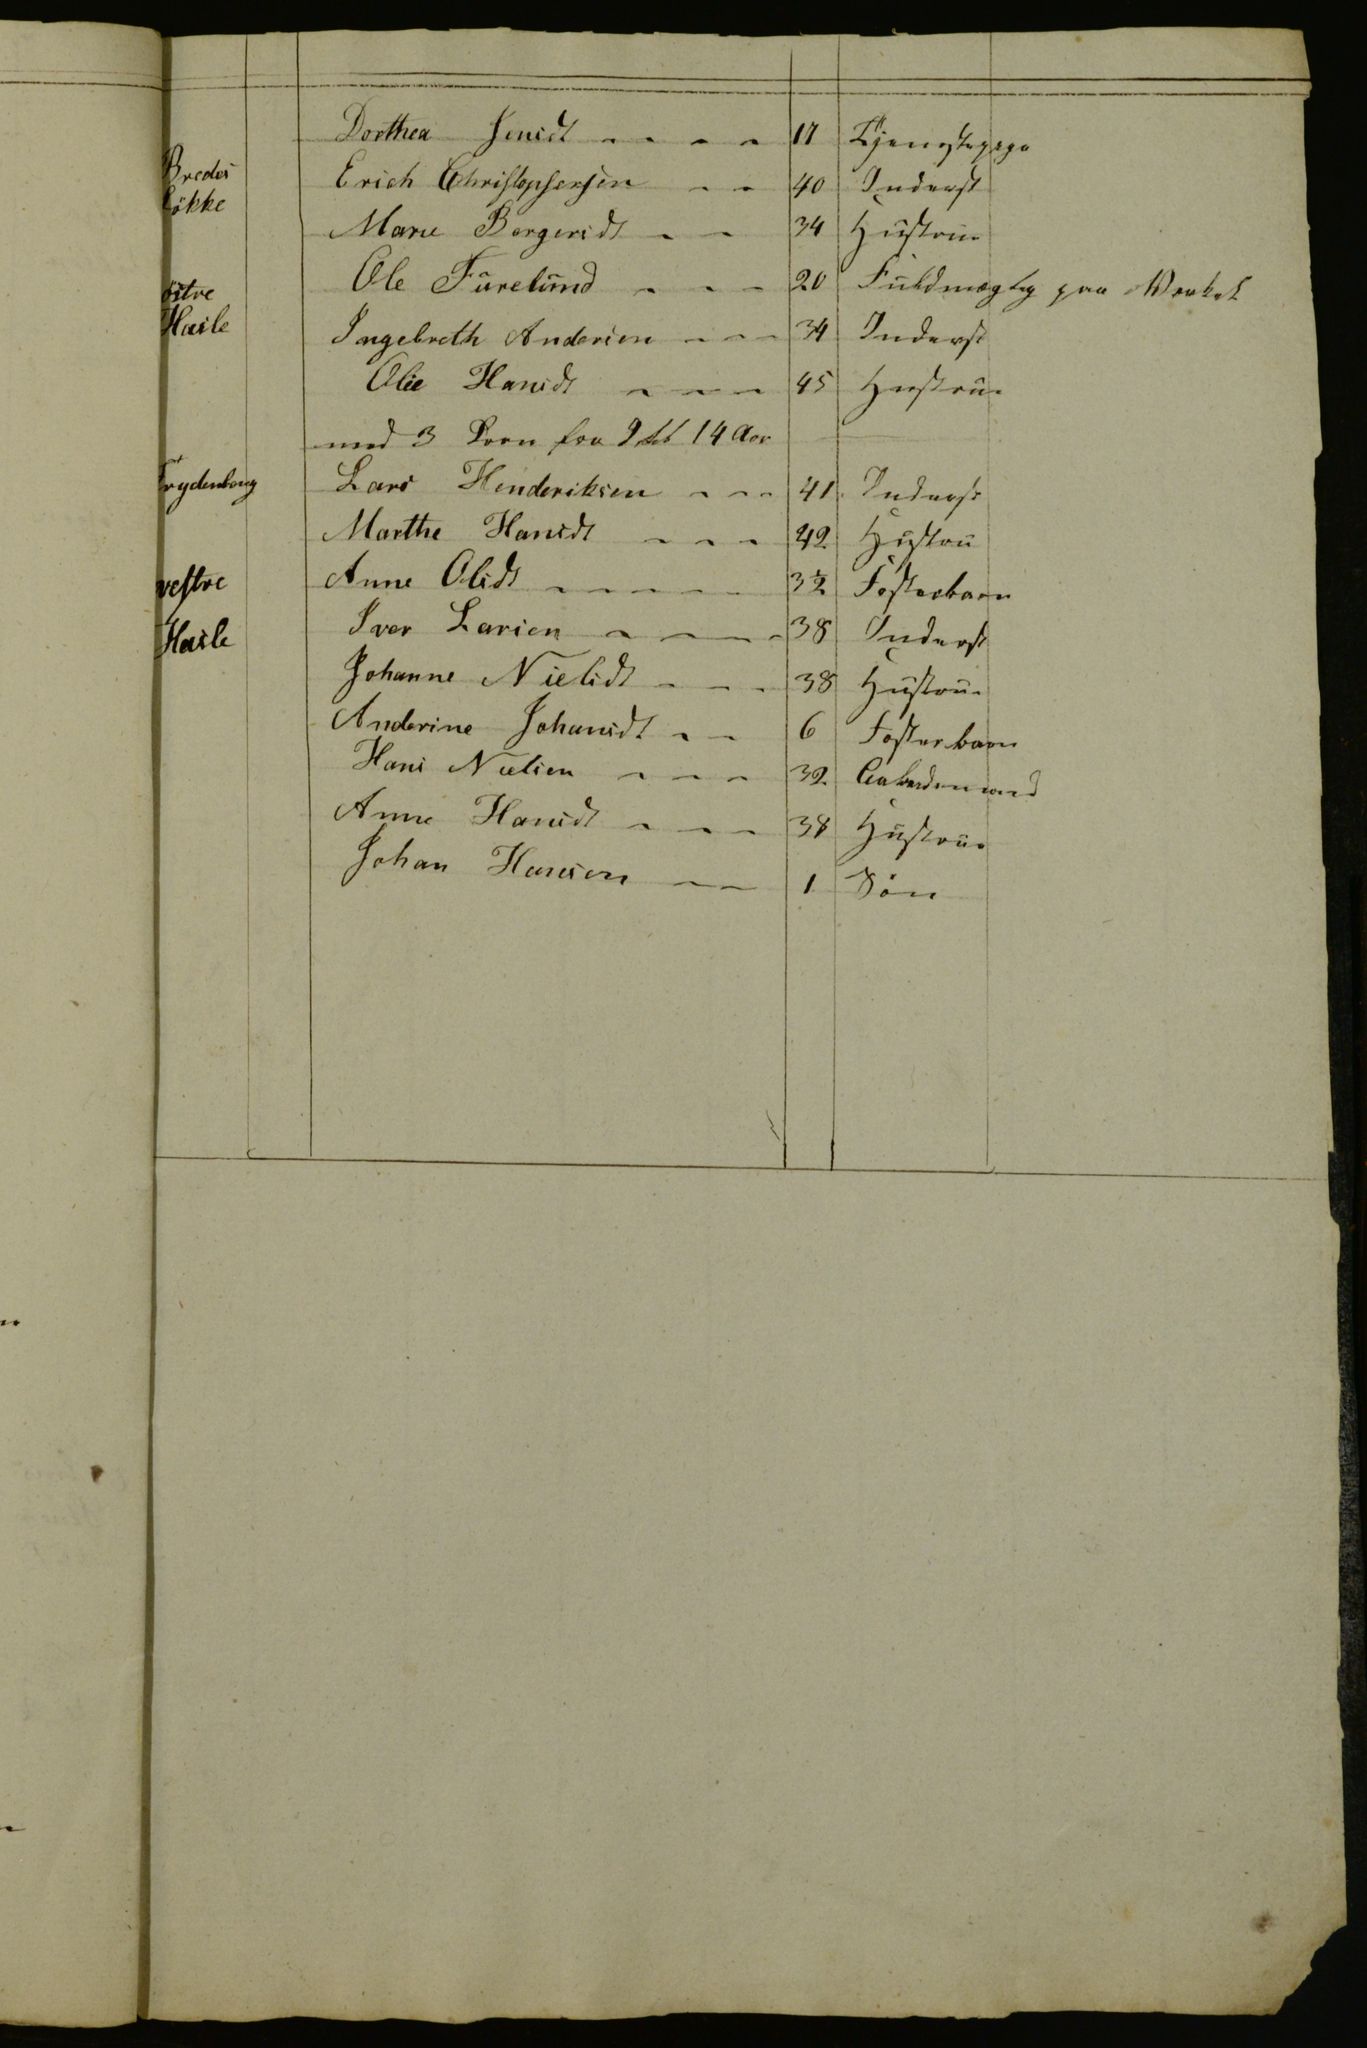 Dorthea Jensdt 17 Tjenestepige
Bredes Erich Christophersen 40 Inderst
Løkke
Marie Borgersdt 34 Hustrue
Ole Furelund 20 Fuldmægtig paa Værket
østre
Hasle Ingebreth Andersen 34 Inderst
Olie Hansdt 45 Hustrue
med 3 Børn fra 9 til 14 Aar
Frydenborg Lars Henderiksen 41 Inderst
Marthe Hansdt 42 Hustru
vestre Anne Olsdt 3 1/2 Fosterbarn
Hasle Iver Larsen 38 Inderst
Johanne Nielsdt 38 Hustrue
Anderine Johansdt 6 Fosterbarn
Hans Nielsen 32
Anne Hansdt 38 Hustrue
Johan Hansen 1 Søn